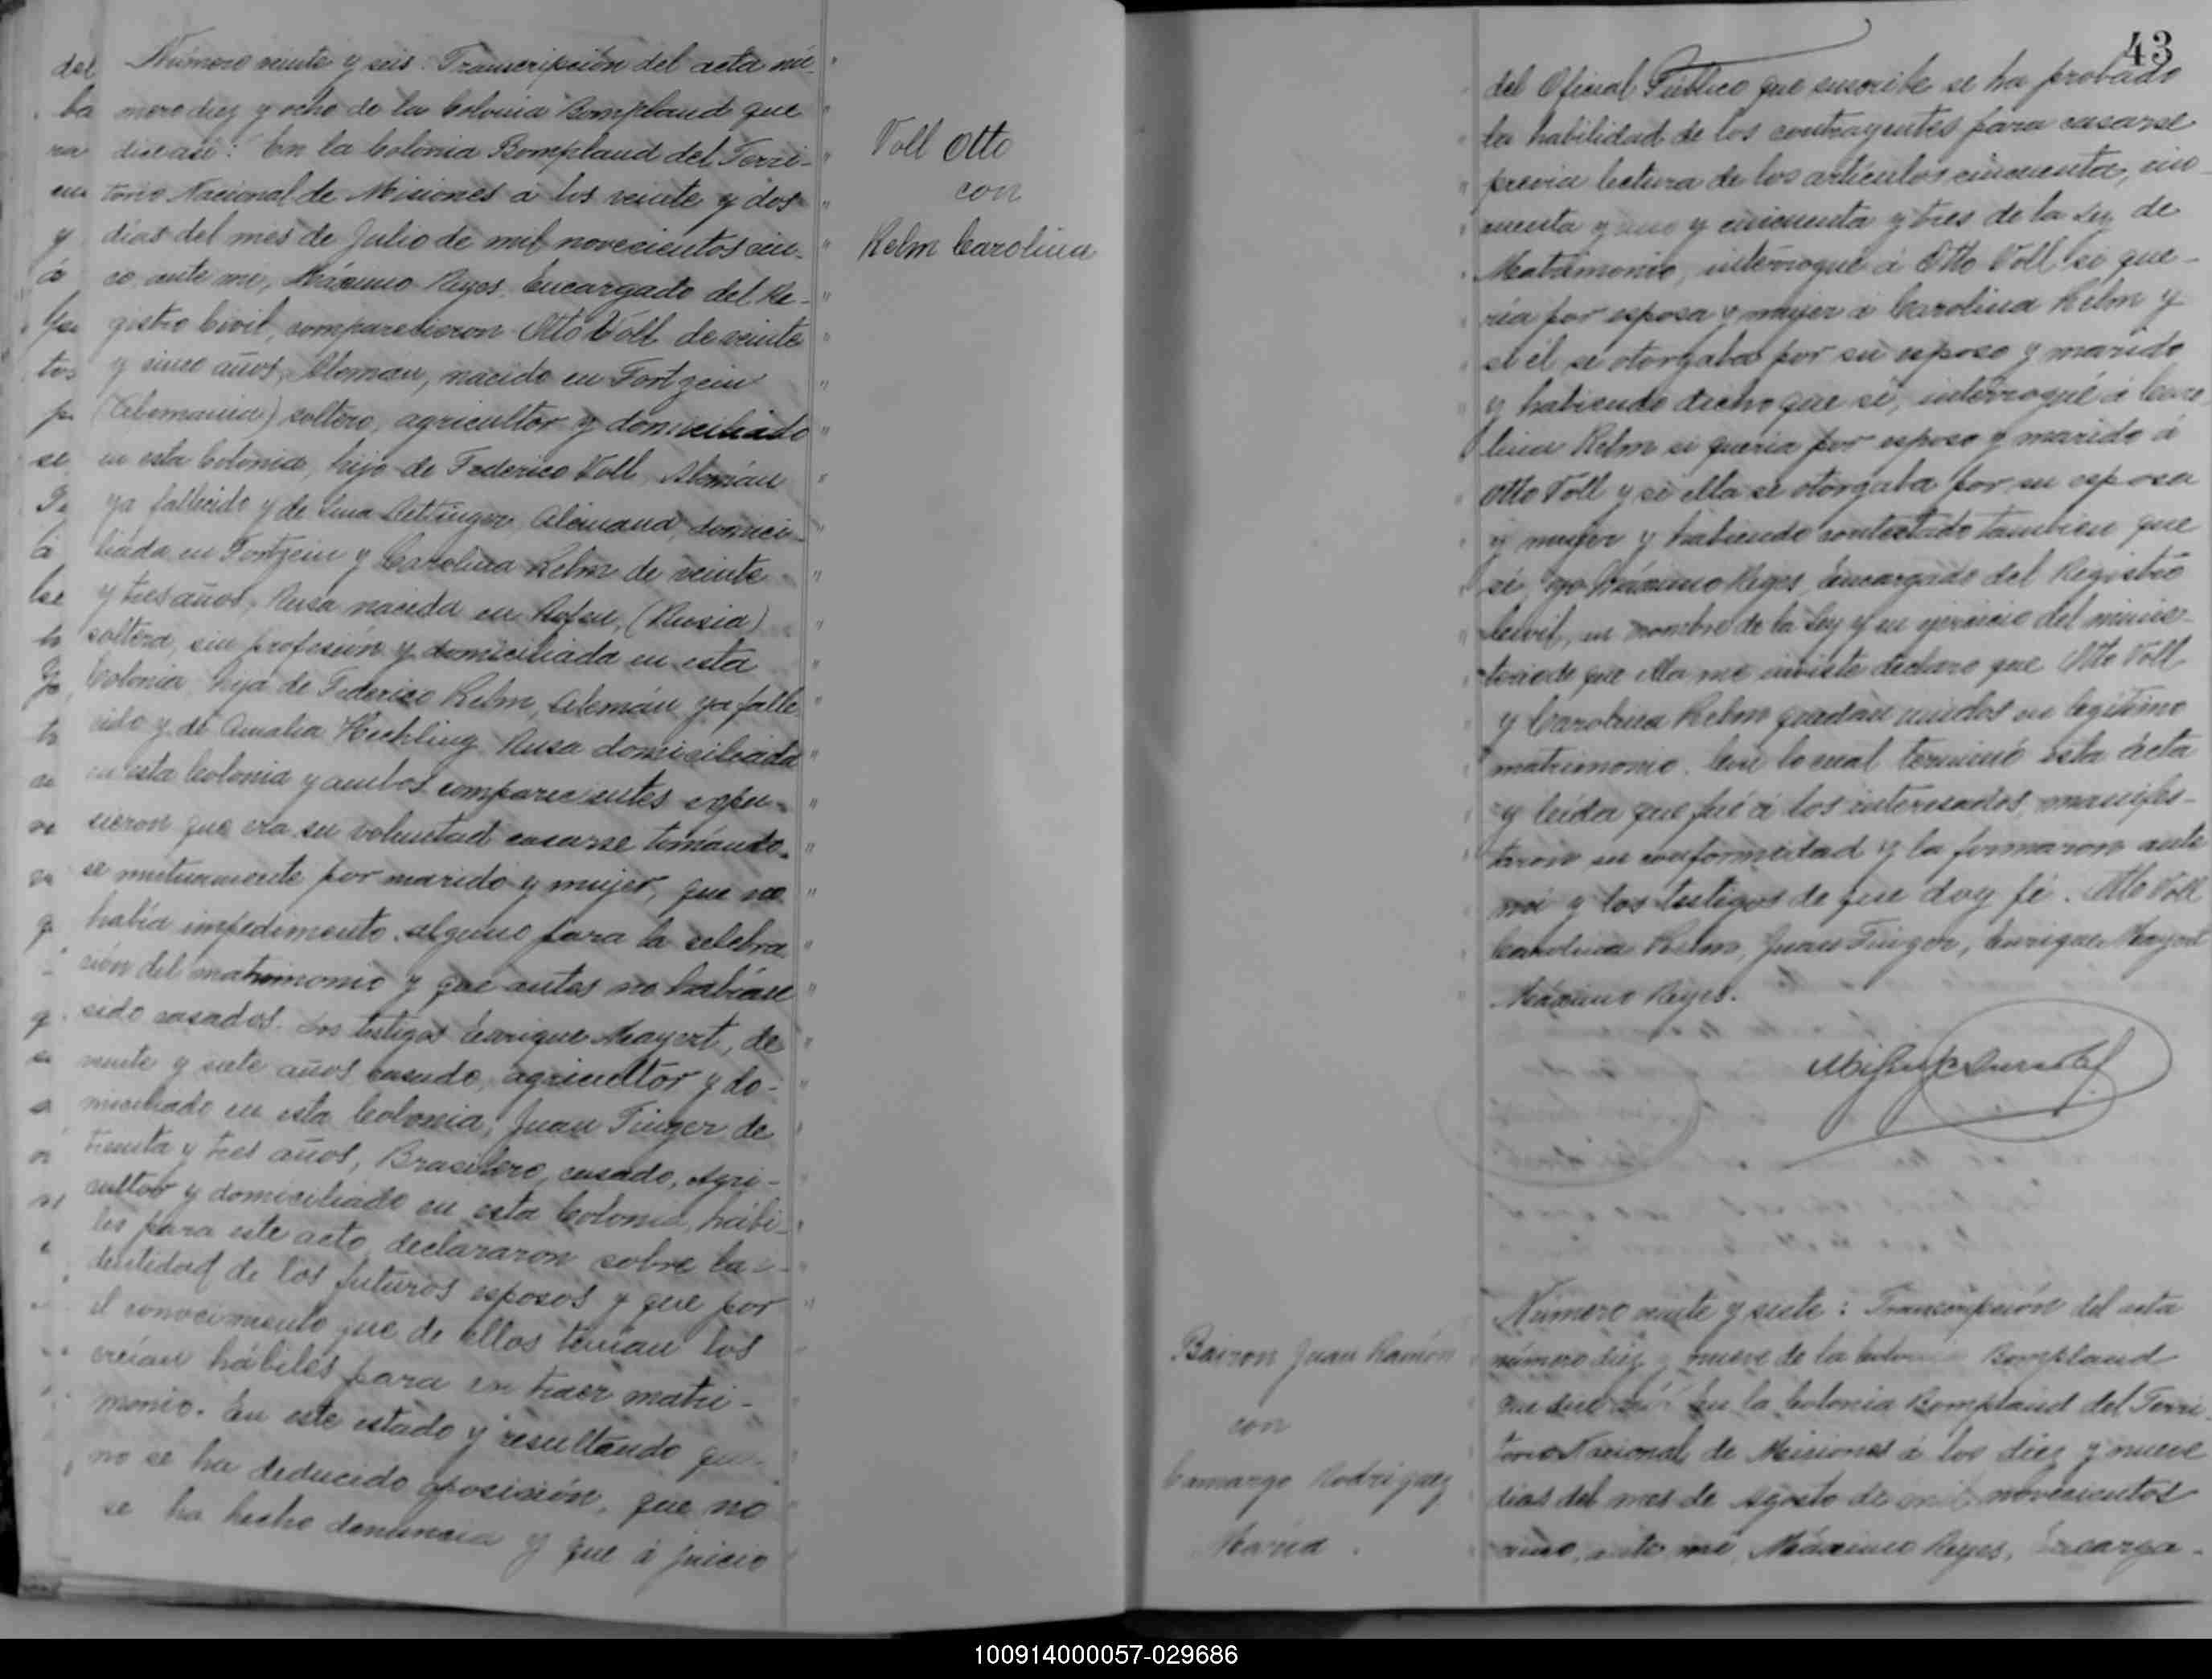 Número veinte y seis: Transcripción del acta nú-
mero diez y ocho de la Colonia Bompland que
dice así: En la Colonia Bompland del Terri-
torio Nacional de Misiones á los veinte y dos
días del mes de Julio de mil novecientos cin-
co, ante mi, Máximo Reyes, Encargado del Re-
gistro Civil, comparecieron Otto Voll de veinte
y cinco años, Aleman, nacido en Fortzein
(Alemania) soltero, agricultor y domiciliado
en esta Colonia, hijo de Federico Voll, Alemán
ya fallecido y de Lina Oettinger, Alemana, domici-
liada en Fortzein y Carolina Kelm de veinte
y tres años, Rusa nacida en (Rusia)
soltera, sin profesión y domiciliada en esta
Colonia, hija de Federico Kelm, Alemán, ya falle
cido y de Amalia Hechling, Rusa domiciliada
en esta Colonia y ambos comparecientes expu-
sieron que era su voluntad casarse tomándo-
se mutuamente por marido y mujer, que no
había impedimento alguno para la celebra
ción del matrimonio y que antes no habían
sido casados. Los testigos Enrique Mayert, de
veinte y siete años casado, agricultor y do-
miciliado en esta Colonia; Juan Finger de
treinta y tres años, Brasilero, casado, Agri-
cultor y domiciliado en esta Colonia, hábi-
les para este acto, declararon sobre la i-
dentidad de los futuros esposos y que por
el conocimiento que de ellos tenían los
creían hábiles para contraer matri-
monio. En este estado y resultando que
no se ha deducido oposición, que no
se ha hecho denuncia y que á juicio
Voll Otto
con
Kelm Carolina
43
del Oficial Público que suscribe se ha probado
la habilidad de los contrayentes para casarse
previa lectura de los artículos cincuenta, cin-
cuenta y uno y cincuenta y tres de la Ley de
Matrimonio, interrogué á Otto Voll si que-
ría por esposa y mujer á Carolina Kelm y
si él se otorgaba por su esposo y marido
y habiendo dicho que sí, interrogué á Caro
lina Kelm si quería por esposo y marido á
Otto Voll y si ella se otorgaba por su esposa
y mujer y habiendo contestado tambien que
sí, yo Máximo Reyes, Encargado del Registro
Civil, en nombre de la Ley y en ejercicio del minis-
terio de que ella me inviste declaro que Otto Voll
y Carolina Kelm quedan unidos en legítimo
matrimonio. Con lo cual terminó esta acta
y leída que fué á los interesados, manifes-
taron su conformidad y la firmaron ante
mí y los testigos de que doy fé. Otto Voll
Carolina Kelm, Juan Finger, Enrique Mayert
Máximo Reyes.
Bairon Juan Ramón
con
Camargo Rodriguez
María.
Número veinte y siete: Transcripción del acta
número diez y nueve de la Colonia Bompland
que dice así: En la Colonia Bompland del Terri
torio Nacional de Misiones á los diez y nueve
días del mes de Agosto de mil novecientos
cinco, ante mí, Máximo Reyes, Encarga-
100914000057-029686